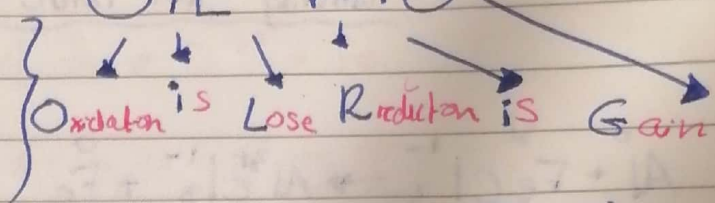 Oxidation is Lose Rreduction is Gain